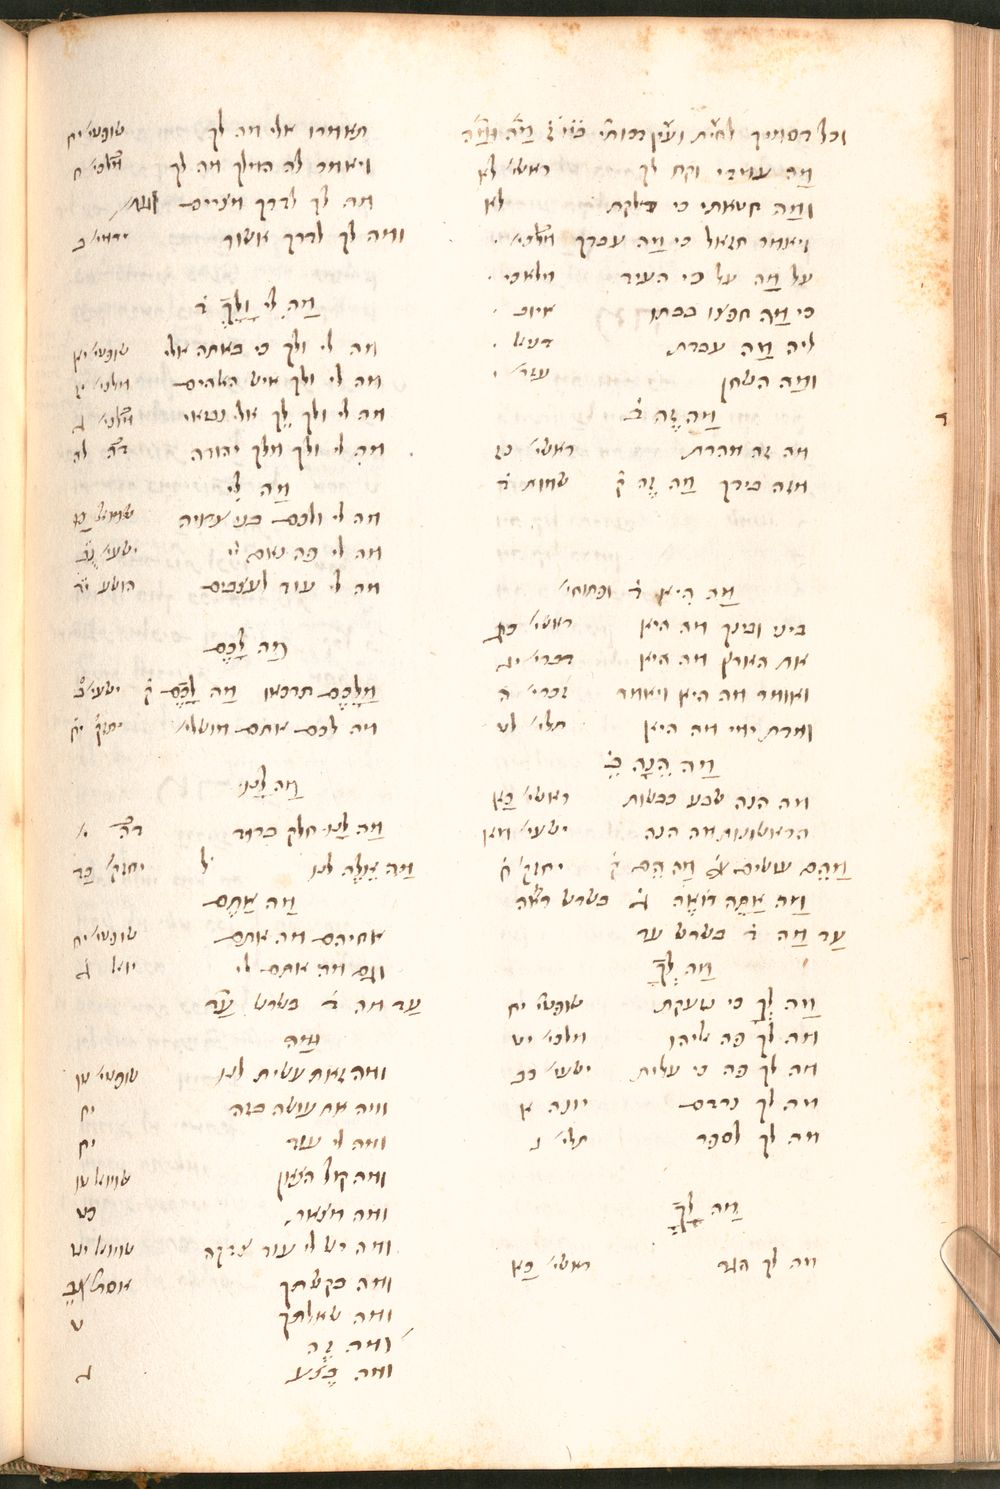 וכל דסמיך לחי״ת ועי״ן
מַה עמדי וקח לך ראשי׳ לא
ומַה חטאתי כי דלקת לא
ויאמר חזאל כי מַה עבדך מלכי׳
על מַה על כי העיד מלאכי
כי מַה חפצו בביתו איוב
ליה מַה עבדת דניאל
ומַה השחן עזר׳ י
מַה זֶה ב̇
מה זה מהרת ראשי׳ כז
מזה בידך מַה זֶה ק̇ שמות ד̇
מַה הִיא ד̇ ופתוחי׳
ביני ובינך מה היא ראשי׳ כג
את הארץ מה היא במדבר׳ יג
ואומר מה היא ויאמר זכרי׳ ה
ומדת ימי מה היא תלי׳ לט
מַה הֵנָה ב̇
מה הנה שבע כבשות ראשי׳ כא
הראשונות מה הנה ישעי׳ מא
מַהֶם עושים ג̇ מַה הֵם ק̇ יחזק׳ ח̇
מַה אַתָּה רוֹאֶה בשרש ראה
עַד מַה ד̇ בשרש עד
מַה לְּךָ
מַה לְּךָ כי נזעקת שופטי׳ יח
מה לך פה אליהו מלכי׳ יט
מה לך פה כי עלית ישעי׳ כב
מה לך נרדם יונה א
מה לך לספר תלי׳ נ
מַה לָּךְ
מה לך הגר ראשי׳ כא
תאמרו אלי מה לך שופטי׳ יח
ויאמר לה המלך מה לך מלכי׳ ח
מה לך לדרך מצרים
ומה לך לדרך אשור ירמי׳ ב
מַה לִּי וָלָךְ ד̇
מה לי ולך כי באתה אלי שופטי׳ יא
מה לי ולך איש האלהים מלכי׳ יז
מה לי ולך לך אל נביאי מלכי׳ ג
מה לי ולך מלך יהודה דה׳ לה
מַה לִּי
מה לי ולכם בני צרויה שמואל
מה לי פה נאם יי׳ ישעי׳ נב
מה לי עוד לעצבים הושע יד
מַה לָכֶם
מַלָּכֶם תדכאו מַה לָּכֶם ק̇ ישעי׳
מה לכם אתם מושלי׳ יחזק׳ יח
מַה לָנוּ
מַה לָנוּ חלק בדוד דה׳ י׳
מַה אֵלֶּה לנו יחזק׳ כד
מַה אַתֶּם
אחיהם מה אתם שופטי׳ יח
וגם מה אתם לי יואל ד̇
עַד מה ד̇ בשרש עַד
וּמַה
ומה זאת עשית לנו שופטי׳ טו
ומה את עושה בזה יח
ומה לי עוד יח
ומה קול הצאן שמואל טו
ומה מצאת כט
ומה יש לי עוד צדקה שמואל יט
ומה בקשתך אסתר
ומה שאלתך ט
ומה זֶה
ומה בֶּצַע ג